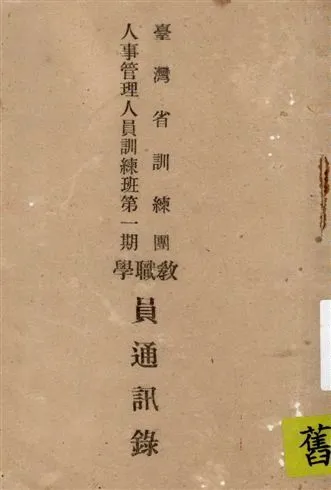 臺灣省訓練團
人事管理人員訓練班第一期
教職學
員通訊錄
舊